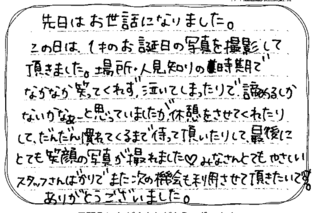 先日はお世話になりました。
この日は、1才のお誕日の写真を撮影して
頂きました。場所・人見知りの時期で
なかなか笑ってくれず、泣いてしまったりで諦めるしか
ないかなぁーと思っていましたが休憩をさせてくれたり
して、だんだん慣れてくるまで待って頂いたりして、最後に
とても笑顔の写真が撮れました♡みなさんとてもやさしい
スタッフさんばかりでまた次の機会も利用させて頂きたいです。
ありがとうございました。